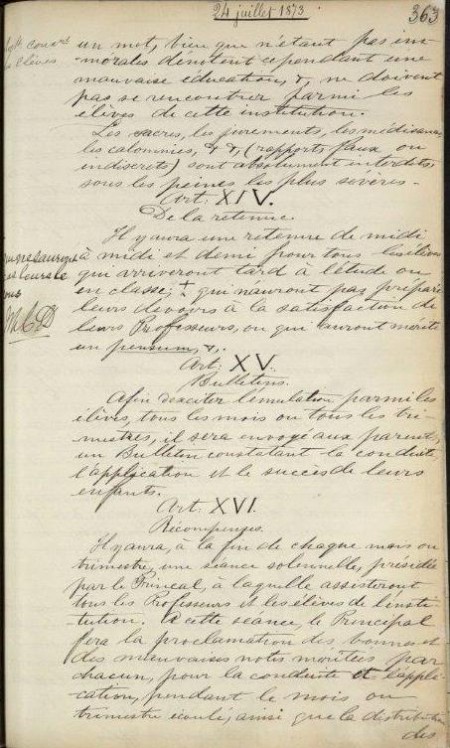 24 juillet 1873
363
un mot, bien que n'étant pas im-
morales dénotent cependant une
mauvaise éducation, &, ne doivent
pas se rencontrer parmi les
élèves de cette institution.
Les sacres, les jurements, les médisances,
les calomnies, & &, (rapports faux ou
indiscrets) sont absolument interdits,
sous les peines les plus sévères -
Art. XIV.
De la retenue.
Il y aura une retenue de midi
à midi et demi pour tous les élèves
qui arriveront tard à l'étude ou
en classe; + qui n'auront pas préparé
leurs devoirs à la satisfaction de
leurs Professeurs, ou qui auront mérité
un pensum, &.
Art. XV.
Bulletins.
Afin d'exciter l'émulation parmi les
élèves, tous les mois ou tous les tri-
mestres, il sera envoyé aux parents,
un Bulletin constatant la conduite,
l'application et le succès de leurs
enfants.
Art. XVI.
Récompenses.
Il y aura, à la fin de chaque mois ou
trimestre, une séance solennelle, présidée
par le Princal, à laquelle assisteront
tous les Professeurs et les élèves de l'insti-
tution. A cette séance, le Principal
fera la proclamation des bonnes et
des mauvaises notes méritées par
chacun, pour la conduite et l'appli-
cation, pendant le mois ou
trimestre écoulé, ainsi que la distribution
des